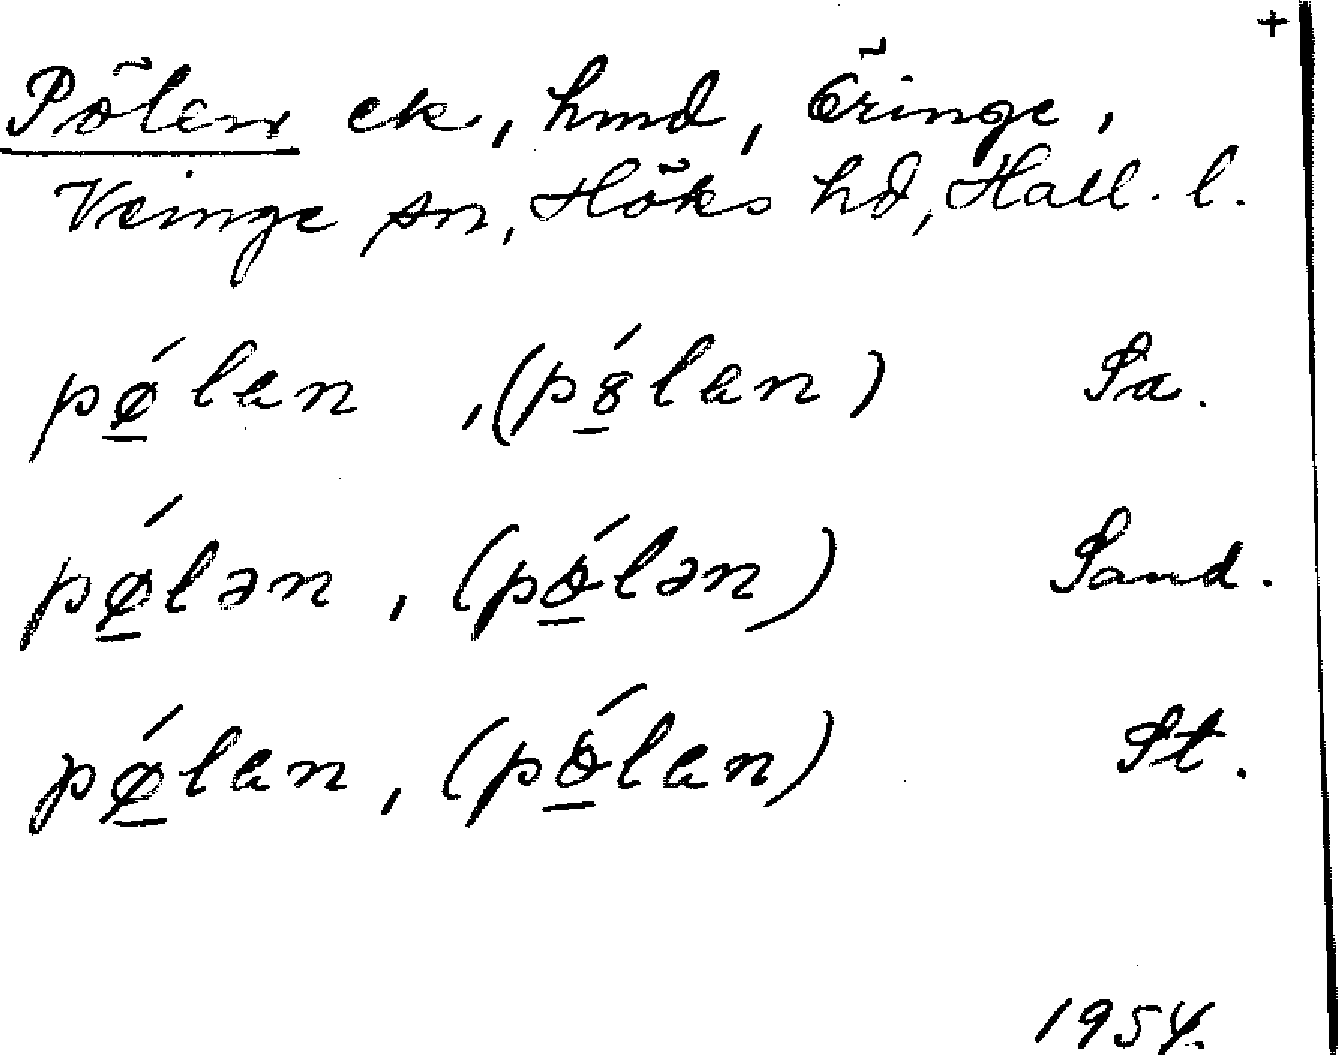 +
Pölen ek, hmd, Öringe,
Veinge sn, Höks hd, Hall. l.
pǿ̲len, (pȣ̲́len) Sa.
pǿ̲lən, (pò̲́lən) Sand.
pǿ̲len, (pò̲́len) St.
1954.